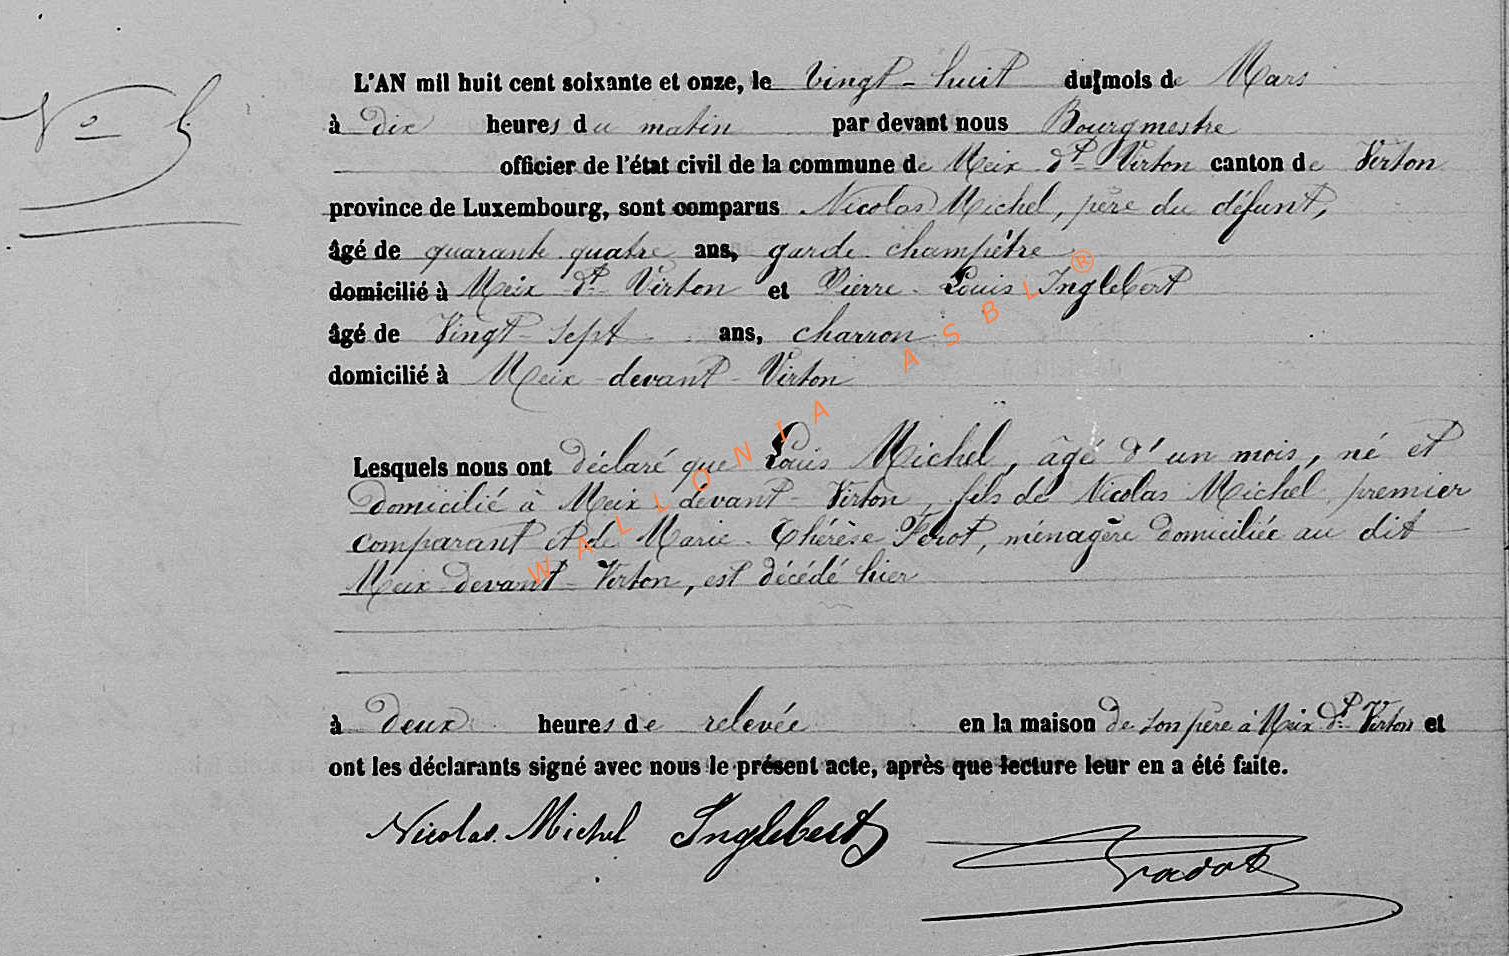 N° 5
L'AN mil huit cent soixante et onze, le vingt-huit du mois de Mars
à dix heures du matin par devant nous Bourgmestre
officier de l'état civil de la commune de Meix dt Virton canton de Virton
province de Luxembourg, sont comparus Nicolas Michel, père du défunt,
âgé de quarante quatre ans, garde champêtre
domicilié à Meix dt Virton et Pierre-Louis Inglebert
âgé de Vingt-sept ans, charron
domicilié à Meix-devant-Virton
Lesquels nous ont déclaré que Louis Michel, âgé d'un mois, né et
domicilié à Meix-devant-Virton, fils de Nicolas Michel, premier
comparant et de Marie-Thérèse Ferot, ménagère domiciliée au dit
Meix-devant-Virton, est décédé hier
à deux heures de relevée en la maison de son père à Meix dt Virton et
ont les déclarants signé avec nous le présent acte, après que lecture leur en a été faite.
Nicolas Michel Inglebert
WALLONIA ASBL ®